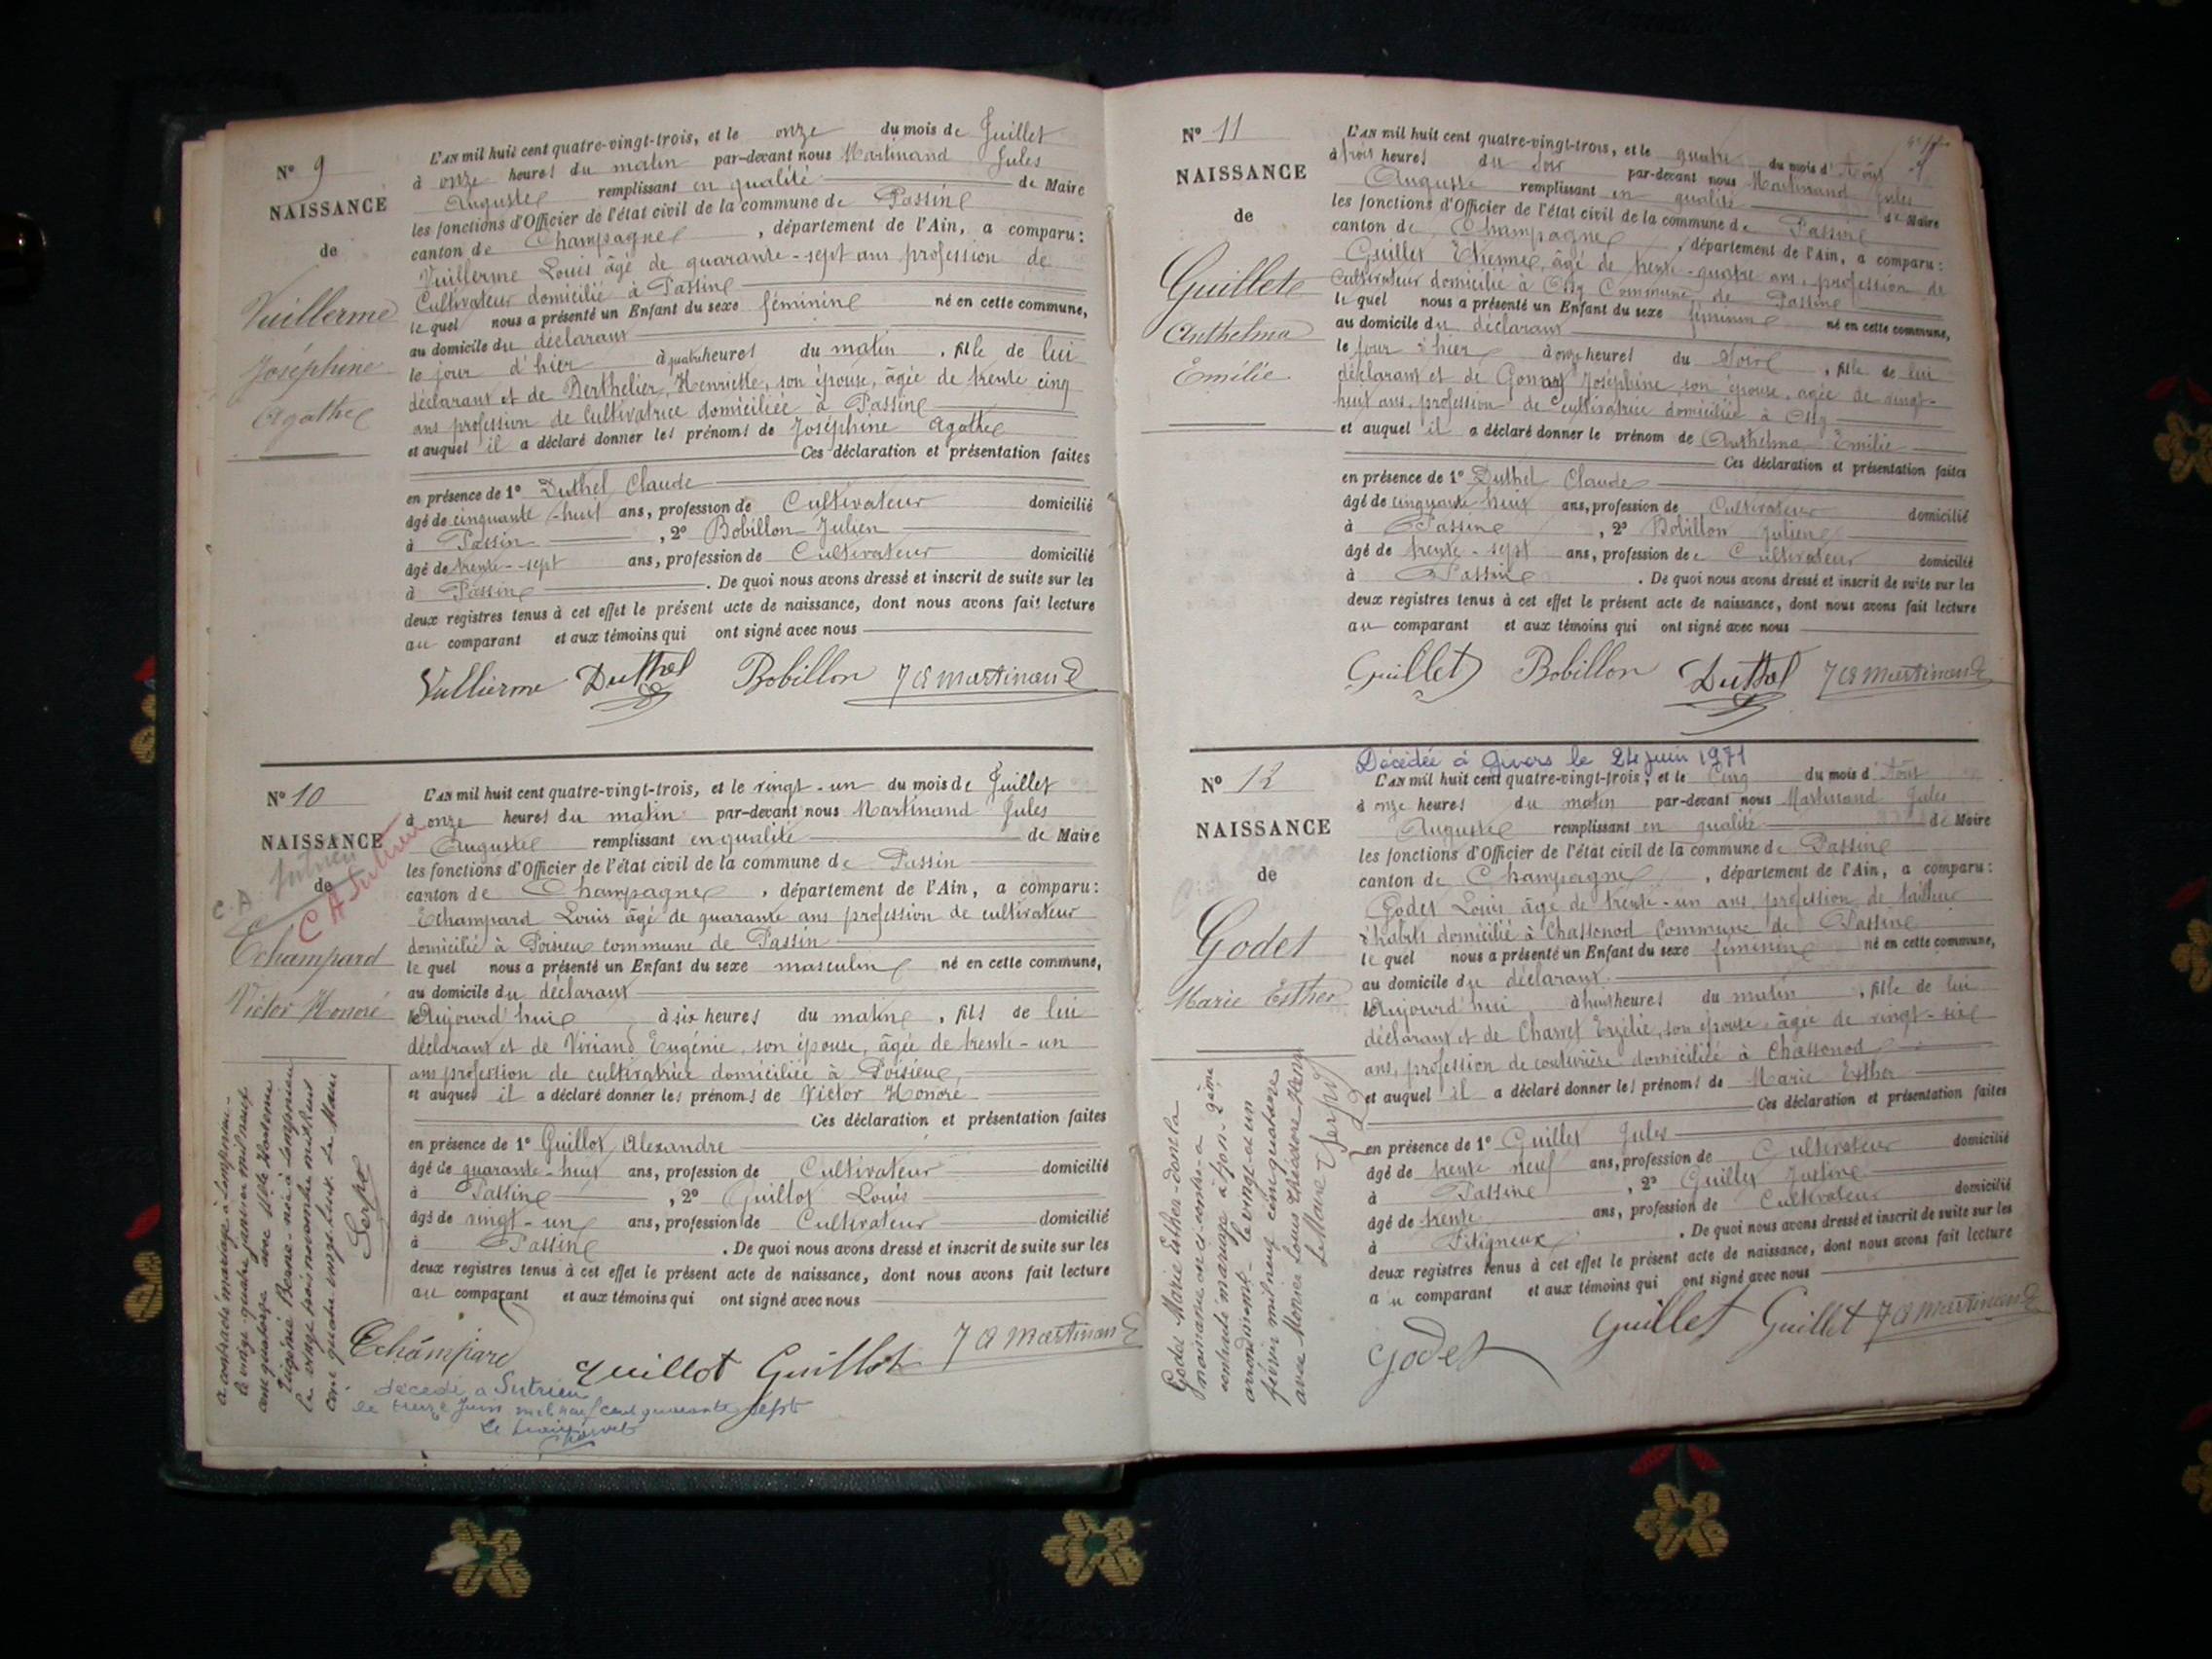 N° 9
NAISSANCE
de
Vuillerme
Joséphine
Agathe
L'AN mil huit cent quatre-vingt-trois, et le onze du mois de Juillet
à onze heures du matin par-devant nous Martinand Jules
Auguste remplissant en qualité de Maire
les fonctions d'Officier de l'état civil de la commune de Passin
canton de Champagne, département de l'Ain, a comparu:
Vuillerme Louis âgé de quarante-sept ans profession de
Cultivateur domicilié à Passin
lequel nous a présenté un Enfant du sexe féminin né en cette commune,
au domicile du déclarant
le jour d'hier à quatre heures du matin, fille de lui
déclarant et de Berthelier Henriette, son épouse, âgée de trente cinq
ans profession de cultivatrice domiciliée à Passin
et auquel il a déclaré donner les prénoms de Joséphine Agathe
Ces déclaration et présentation faites
en présence de 1° Duthel Claude
âgé de cinquante-huit ans, profession de Cultivateur domicilié
à Passin, 2° Bobillon Julien
âgé de trente-sept ans, profession de Cultivateur domicilié
à Passin. De quoi nous avons dressé et inscrit de suite sur les
deux registres tenus à cet effet le présent acte de naissance, dont nous avons fait lecture
au comparant et aux témoins qui ont signé avec nous
Vullierme Duthel Bobillon J A Martinand
N° 10
NAISSANCE
de
C.A. Sutrieu
C A Sutrieu
Echampard
Victor Honoré
L'AN mil huit cent quatre-vingt-trois, et le vingt-un du mois de Juillet
à onze heures du matin par-devant nous Martinand Jules
Auguste remplissant en qualité de Maire
les fonctions d'Officier de l'état civil de la commune de Passin
canton de Champagne, département de l'Ain, a comparu:
Echampard Louis âgé de quarante ans profession de cultivateur
domicilié à Poisieu commune de Passin
lequel nous a présenté un Enfant du sexe masculin né en cette commune,
au domicile du déclarant
le Aujourd'hui à six heures du matin, fils de lui
déclarant et de Viviand Eugénie, son épouse, âgée de trente-un
ans profession de cultivatrice domiciliée à Poisieu
et auquel il a déclaré donner les prénoms de Victor Honoré
Ces déclaration et présentation faites
en présence de 1° Guillot Alexandre
âgé de quarante-huit ans, profession de Cultivateur domicilié
à Passin, 2° Guillot Louis
âgé de vingt-un ans, profession de Cultivateur domicilié
à Passin. De quoi nous avons dressé et inscrit de suite sur les
deux registres tenus à cet effet le présent acte de naissance, dont nous avons fait lecture
au comparant et aux témoins qui ont signé avec nous
Echampard Guillot Guillot J A Martinand
a contracté mariage à Lompnieu
le vingt-quatre janvier mil neuf
cent quatorze avec
Eugénie Berne née à Lompnieu
le vingt trois novembre mil huit
cent quatre vingt-deux. Le Maire
Serpo
décédé a Sutrieu
le treize Juin mil neuf cent quarante sept
le maire
Charvet
N° 11
NAISSANCE
de
Guillet
Anthelma
Emilie
L'AN mil huit cent quatre-vingt-trois, et le quatre du mois d'Août
à trois heures du soir par-devant nous Martinand Jules
Auguste remplissant en qualité de Maire
les fonctions d'Officier de l'état civil de la commune de Passin
canton de Champagne, département de l'Ain, a comparu:
Guillet Etienne, âgé de trente-quatre ans, profession de
Cultivateur domicilié à Ossy Commune de Passin
lequel nous a présenté un Enfant du sexe féminin né en cette commune,
au domicile du déclarant
le jour d'hier à onze heures du soir, fille de lui
déclarant et de Joséphine son épouse, âgée de vingt-
huit ans, profession de cultivatrice domiciliée à Ossy
et auquel il a déclaré donner le prénom de Anthelma Emilie
Ces déclaration et présentation faites
en présence de 1° Duthel Claude
âgé de cinquante huit ans, profession de Cultivateur domicilié
à Passin, 2° Bobillon Julien
âgé de trente-sept ans, profession de Cultivateur domicilié
à Passin. De quoi nous avons dressé et inscrit de suite sur les
deux registres tenus à cet effet le présent acte de naissance, dont nous avons fait lecture
au comparant et aux témoins qui ont signé avec nous
Guillet Bobillon Duthel J A Martinand
Décédée à Givors le 24 juin 1971
N° 12
NAISSANCE
de
Godet
Marie Esther
L'AN mil huit cent quatre-vingt-trois, et le Cinq du mois d'Août
à onze heures du matin par-devant nous Martinand Jules
Auguste remplissant en qualité de Maire
les fonctions d'Officier de l'état civil de la commune de Passin
canton de Champagne, département de l'Ain, a comparu:
Godet Louis âgé de trente-un ans profession de tailleur
d'habits domicilié à Chassonod Commune de Passin
lequel nous a présenté un Enfant du sexe féminin né en cette commune,
au domicile du déclarant
le Aujourd'hui à huit heures du matin, fille de lui
déclarant et de Charvet, son épouse, âgée de vingt-six
ans, profession de couturière domiciliée à Chassonod
et auquel il a déclaré donner les prénoms de Marie Esther
Ces déclaration et présentation faites
en présence de 1° Guillet Jules
âgé de trente neuf ans, profession de Cultivateur domicilié
à Passin, 2° Guillet Justin
âgé de trente ans, profession de Cultivateur domicilié
à Fitigneux. De quoi nous avons dressé et inscrit de suite sur les
deux registres tenus à cet effet le présent acte de naissance, dont nous avons fait lecture
au comparant et aux témoins qui ont signé avec nous
Godet Guillet Guillet J A Martinand
Godet Marie Esther dont la
naissance est ci-contre a
contracté mariage à Lyon 2ème
arrondissement le vingt-et-un
février mil neuf cent quatorze
avec Monier Louis
Le Maire Serpo